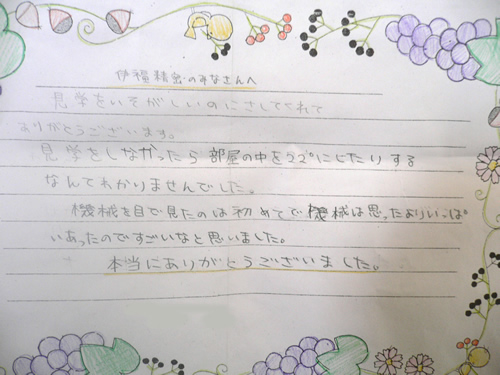 伊福精密のみなさんへ
見学をいそがしいのにさしてくれて
ありがとうございます。
見学をしなかったら部屋の中を22°にしたりする
なんてわかりませんでした。
機械を目で見たのは初めてで機械は思ったよりいっぱ
いあったのですごいなと思いました。
本当にありがとうございました。